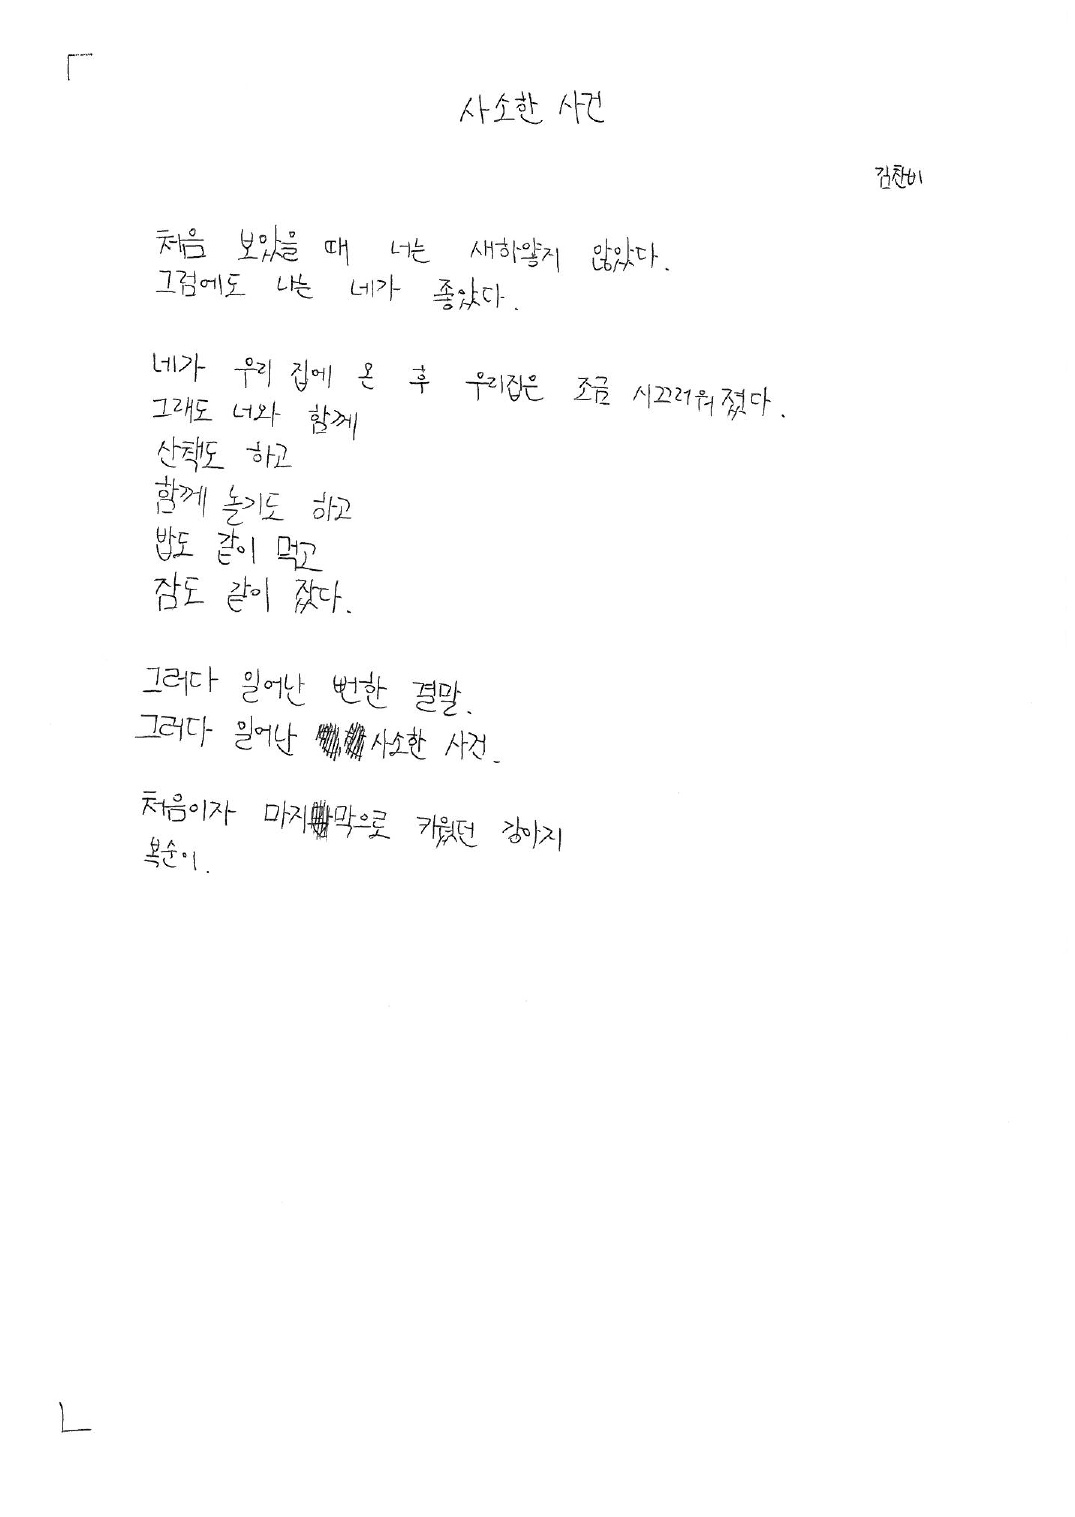 사소한 사건
김찬비
처음 보았을 때 너는 새하얗지 않았다.
그럼에도 나는 네가 좋았다.
네가 우리 집에 온 후 우리집은 조금 시끄러워졌다.
그래도 너와 함께
산책도 하고
함께 놀기도 하고
밥도 같이 먹고
잠도 같이 잤다.
그러다 일어난 뻔한 결말.
그러다 일어난 사소한 사건.
처음이자 마지막으로 키웠던 강아지
복순이.